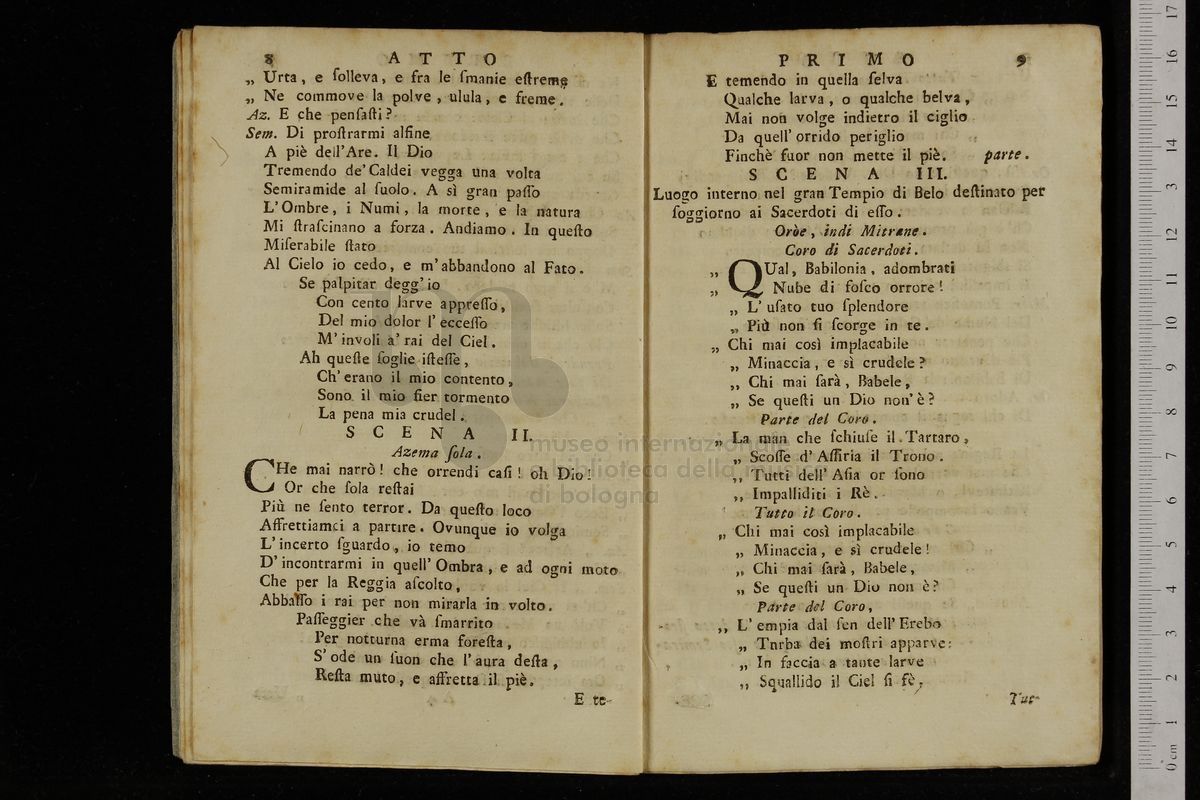 8 ATTO
„ Urta, e ſolleva, e fra le ſmanie eſtreme
„ Ne commove la polve, ulula, e freme.
Az. E che penſaſti?
Sem. Di proſtrarmi alfine
A piè dell'Are. Il Dio
Tremendo de' Caldei vegga una volta
Semiramide al ſuolo. A sì gran paſſo
L'Ombre, i Numi, la morte, e la natura
Mi ſtraſcinano a forza. Andiamo. In queſto
Miſerabile ſtato
Al Cielo io cedo, e m'abbandono al Fato.
Se palpitar degg'io
Con cento larve appreſſo,
Del mio dolor l'ecceſſo
M'involi a' rai del Ciel.
Ah queſte ſoglie iſteſſe,
Ch'erano il mio contento,
Sono il mio fier tormento
La pena mia crudel.
SCENA II.
Azema ſola.
CHe mai narrò! che orrendi caſi! oh Dio!
Or che ſola reſtai
Più ne ſento terror. Da queſto loco
Affrettiamci a partire. Ovunque io volga
L'incerto ſguardo, io temo
D'incontrarmi in quell'Ombra, e ad ogni moto
Che per la Reggia aſcolto,
Abbaſſo i rai per non mirarla in volto.
Paſſeggier che và ſmarrito
Per notturna erma foreſta,
S'ode un ſuon che l'aura deſta,
Reſta muto, e affretta il piè.
E te-
PRIMO 9
E temendo in quella ſelva
Qualche larva, o qualche belva,
Mai non volge indietro il ciglio
Da quell'orrido periglio
Finchè fuor non mette il piè. parte.
SCENA III.
Luogo interno nel gran Tempio di Belo deſtinato per
ſoggiorno ai Sacerdoti di eſſo.
Oròe, indi Mitrane.
Coro di Sacerdoti.
„ QUal, Babilonia, adombrati
„ Nube di foſco orrore!
„ L'uſato tuo ſplendore
„ Più non ſi ſcorge in te.
„ Chi mai così implacabile
„ Minaccia, e sì crudele?
„ Chi mai ſarà, Babele,
„ Se queſti un Dio non'è?
Parte del Coro.
„ La man che ſchiuſe il Tartaro,
„ Scoſſe d'Aſſiria il Trono.
„ Tutti dell'Aſia or ſono
„ Impalliditi i Rè.
Tutto il Coro.
„ Chi mai così implacabile
„ Minaccia, e sì crudele!
„ Chi mai ſarà, Babele,
„ Se queſti un Dio non è?
Parte del Coro,
„ L'empia dal ſen dell'Erebo
„ Tnrba dei moſtri apparve:
„ In faccia a tante larve
„ Squallido il Ciel ſi fè,
Tut-
museo internazionale
e biblioteca della musica
di bologna
17
16
15
14
13
12
11
10
9
8
7
6
5
4
3
2
1
0 cm